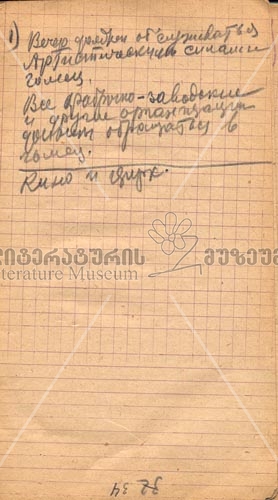 1) Вечер должен обслуживаться
Артистическими силами
Гомец.
Все фабрично-заводские
и другие организации
должны обращаться в
Гомец.
Кино и цирк.
ლიტერატურის მუზეუმ
iterature Museum
32 34